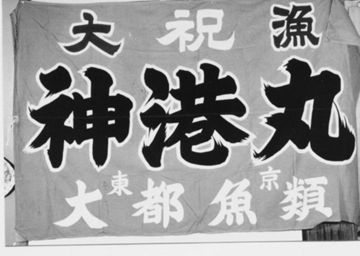 大 祝 漁
神港丸
東 京
大都魚類